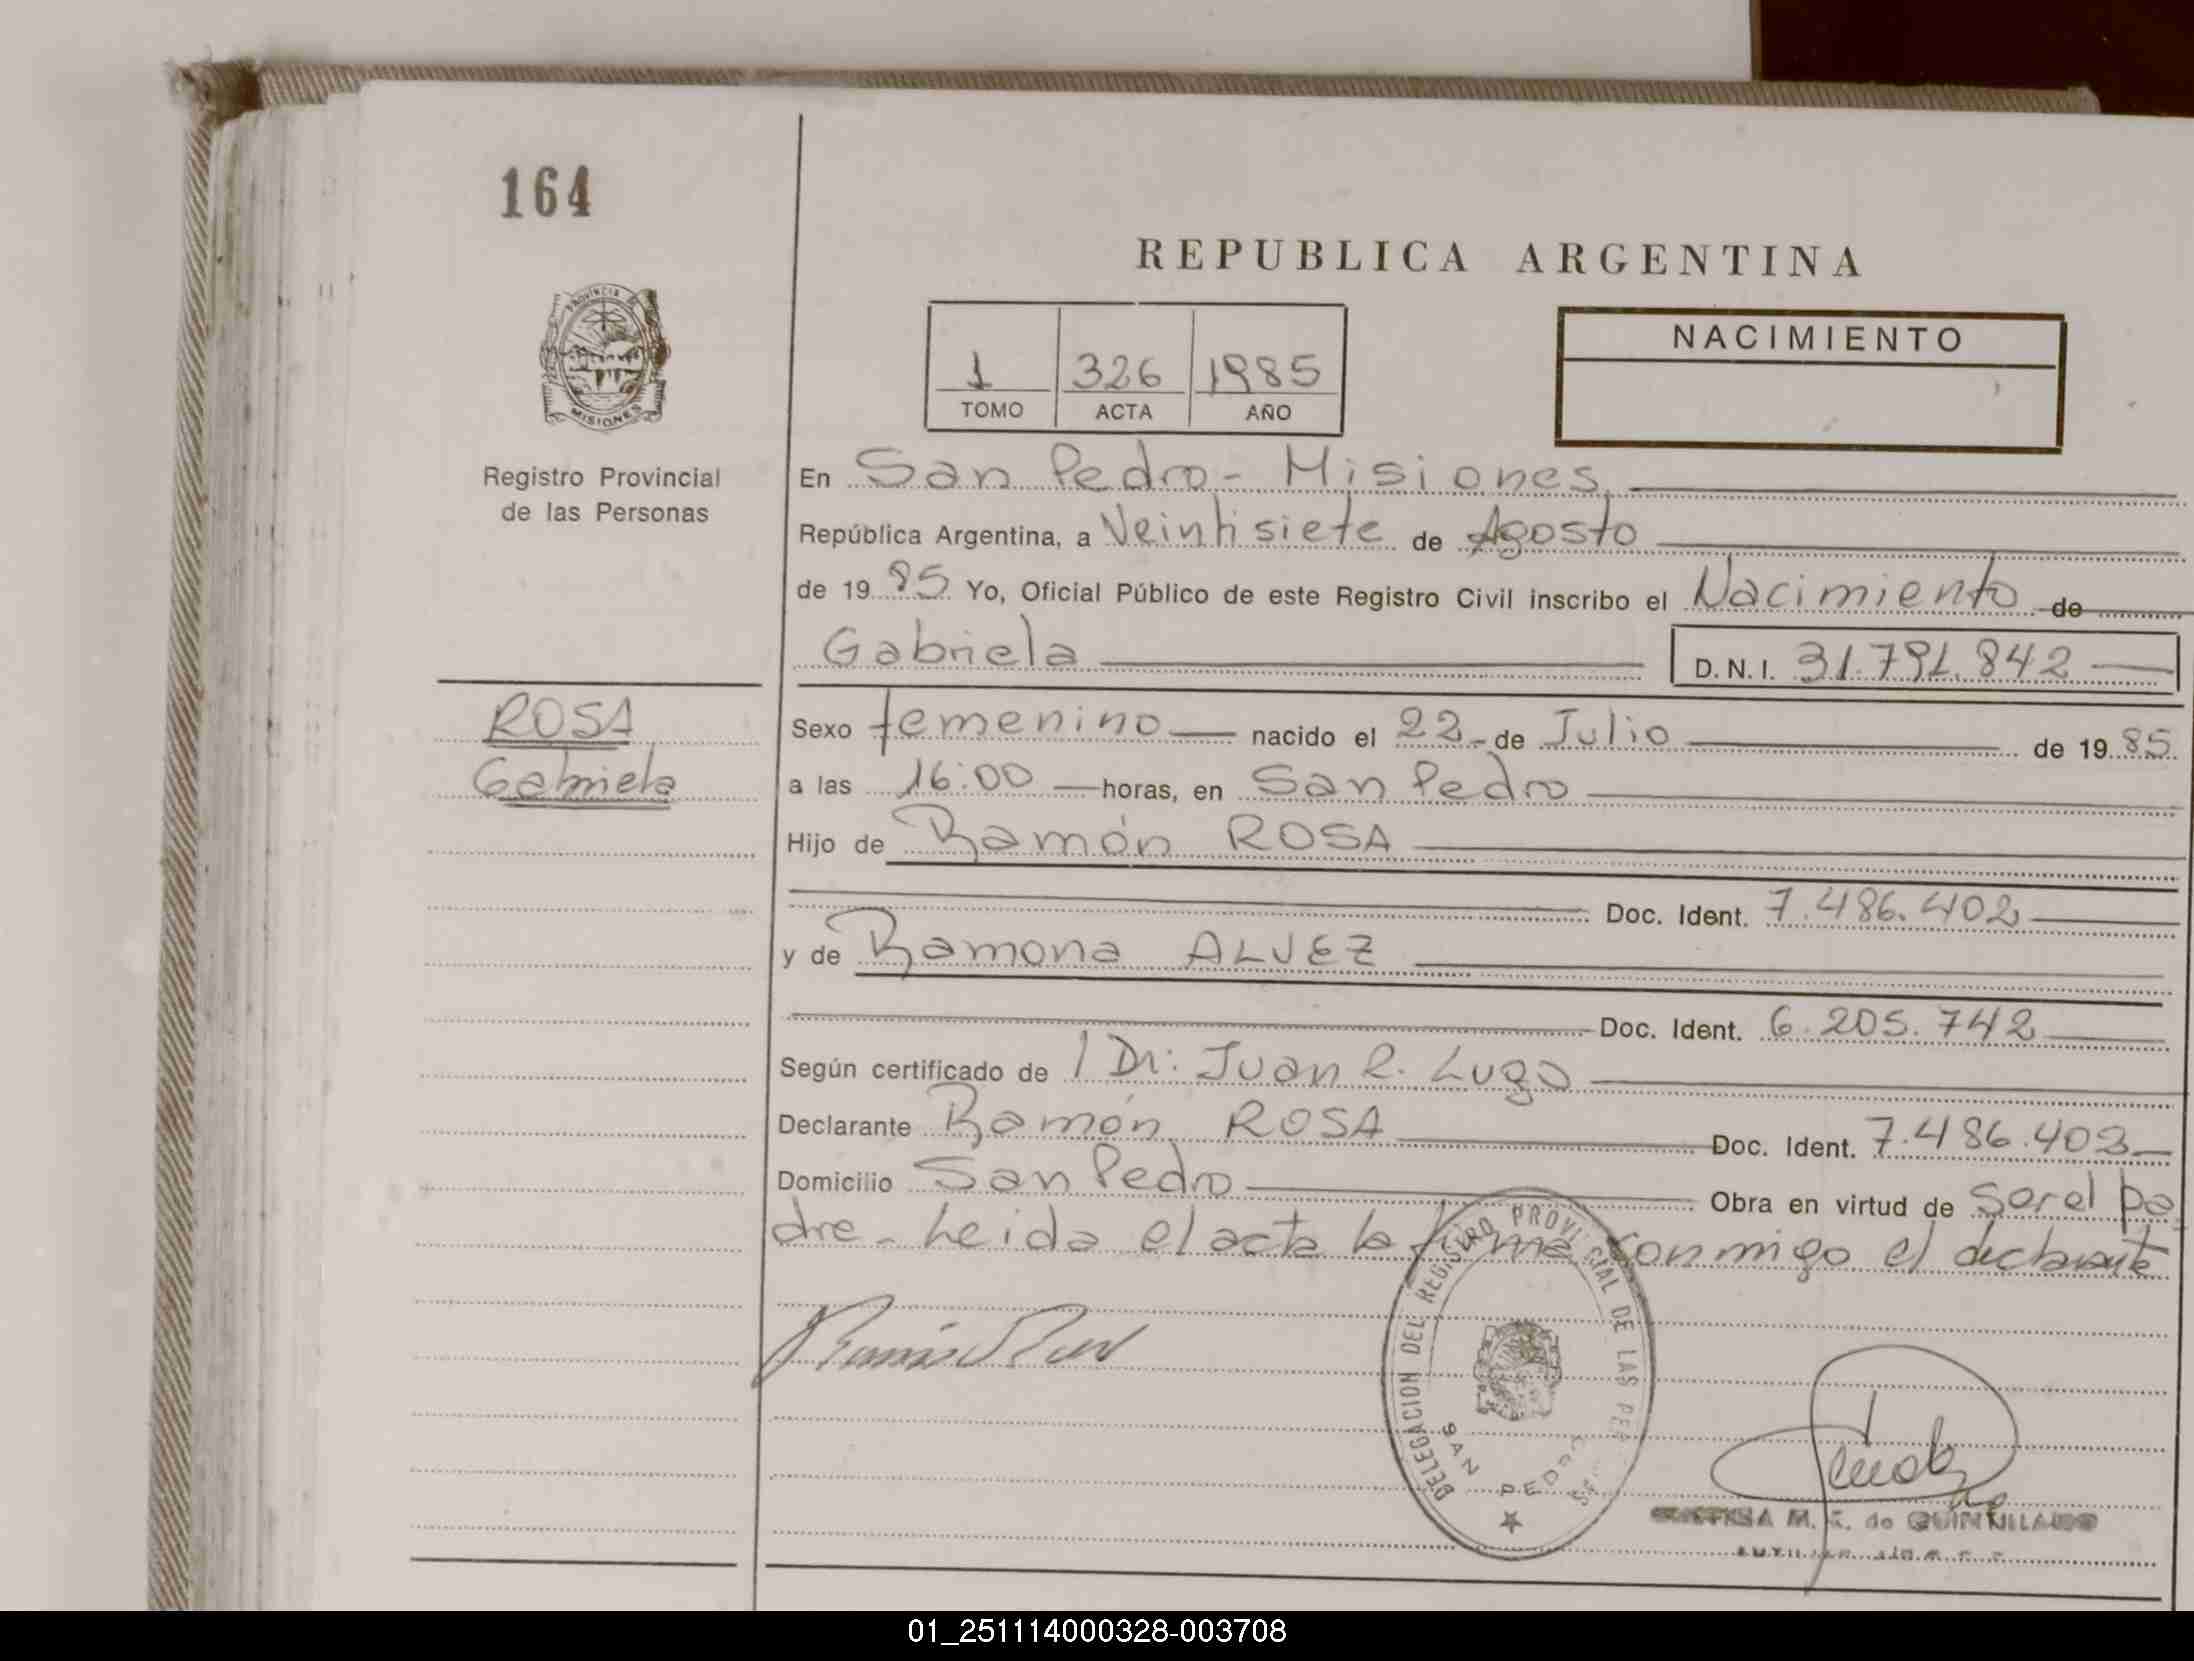 164
REPUBLICA ARGENTINA
PROVINCIA DE
MISIONES
Registro Provincial
de las Personas
1 326 1985
TOMO ACTA AÑO
NACIMIENTO
En San Pedro - Misiones
República Argentina, a Veintisiete de Agosto
de 1985 Yo, Oficial Público de este Registro Civil inscribo el Nacimiento de
Gabriela D.N.I. 31.791.842
ROSA
Gabriela
Sexo femenino nacido el 22 de Julio de 1985
a las 16:00 horas, en San Pedro
Hijo de Ramón ROSA
Doc. Ident. 7.486.402
y de Ramona ALVEZ
Doc. Ident. 6.205.742
Según certificado de Dr: Juan R. Lugo
Declarante Ramón ROSA Doc. Ident. 7.486.402
Domicilio San Pedro Obra en virtud de Ser el pa
dre - Leida el acta la firma conmigo el declarante
DELEGACION DEL REGISTRO PROVINCIAL DE LAS PER
SAN PEDRO
M. de QUINTILIANO
01_251114000328-003708